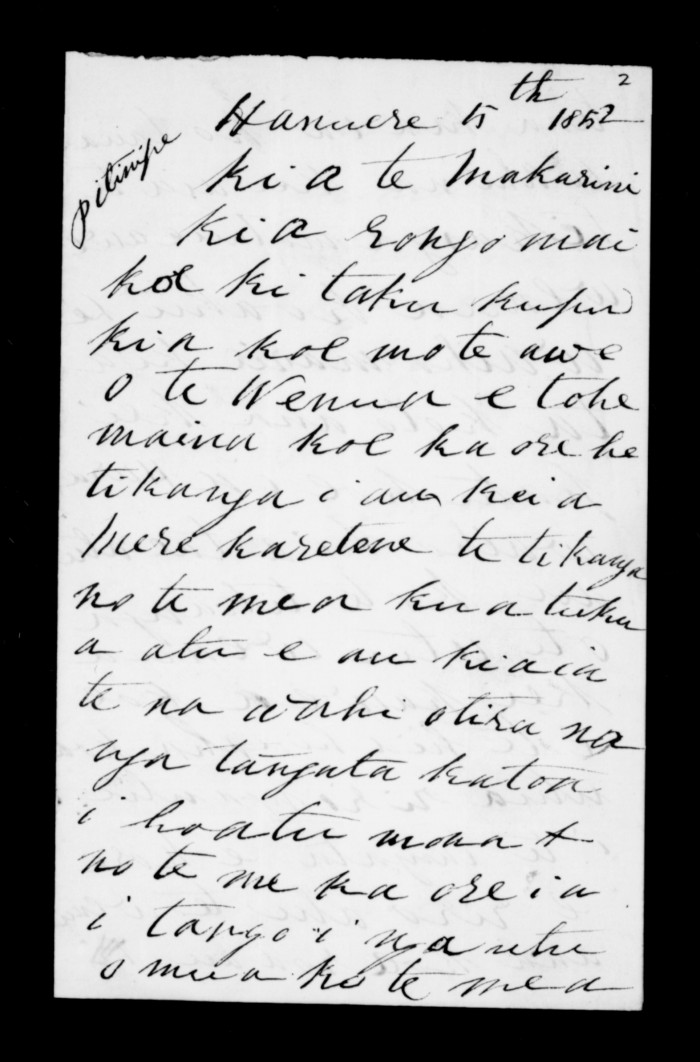 2
Hanuere 15th 1852
Pitinipe
Kia te Makarini
Kia rongo mai
koe ki taku kupu
kia koe mo te awe
o te Wenua e tohe
maina koe ka ore he
tikanga i au kei a
Mere karetene te tikanga
no te mea kua tuku
a atu e au kiaia
te na wahi otira na
nga tangata katoa
i hoatu mona +
no te me ka ore ia
i tango i nga utu
o mua ko te mea